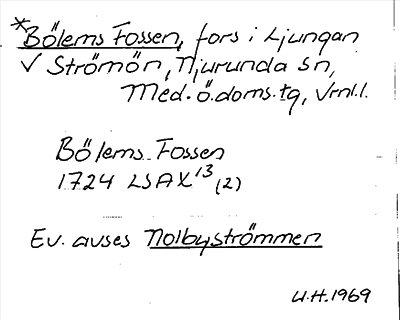 *Bölems Fossen, fors i Ljungan
V Strömön, Njurunda sn,
Med.ö.doms.tg, Vrnl.l.
Bölems Fossen
1724 LSA X¹³ (2)
Ev. avses Nolbyströmmen
U.H. 1969